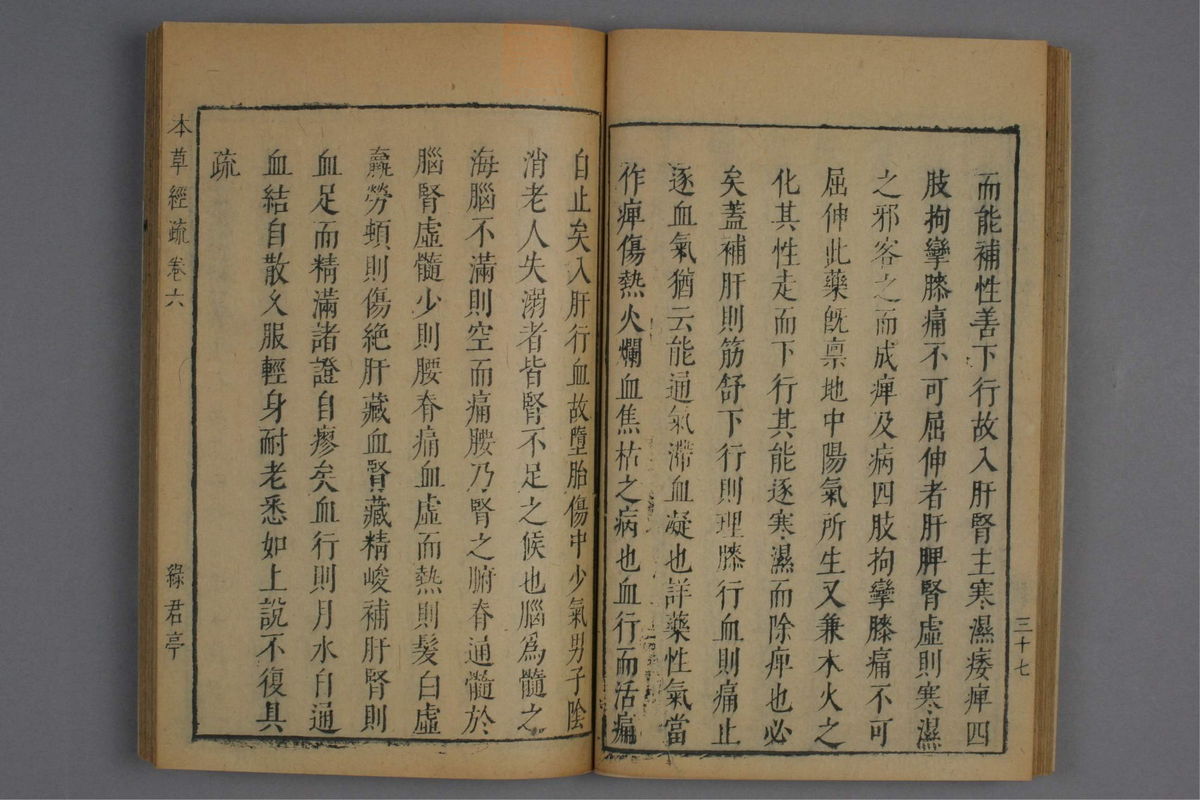 而能補性善下行故入肝腎主寒濕痿痺四
肢拘攣膝痛不可屈伸者肝脾腎虛則寒濕
之邪客之而成痺及病四肢拘攣膝痛不可
屈伸此藥旣稟地中陽氣所生又兼木火之
化其性走而下行其能逐寒濕而除痺也必
矣蓋補肝則筋舒下行則理膝行血則痛止
逐血氣猶云能通氣滯血凝也詳藥性氣當
作痺傷熱火爛血焦枯之病也血行而活痛
三十七
自止矣入肝行血故墮胎傷中少氣男子陰
消老人失溺者皆腎不足之候也腦爲髓之
海腦不滿則空而痛腰乃腎之腑脊通髓於
腦腎虛髓少則腰脊痛血虛而熱則髮白虛
羸勞頓則傷絶肝藏血腎藏精峻補肝腎則
血足而精滿諸證自瘳矣血行則月水自通
血結自散久服輕身耐老悉如上說不復具
疏
本草經疏卷六
綠君亭